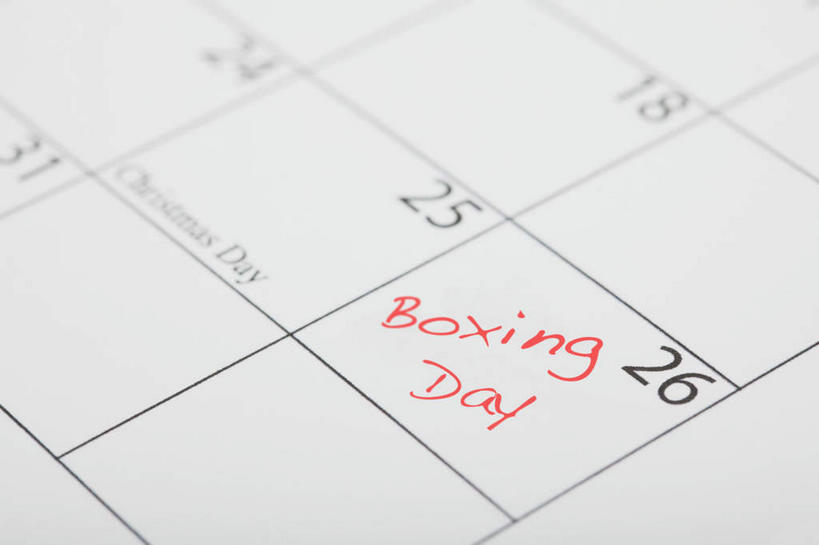 24
18
31
25
Christmas Day
Boxing
Day
26